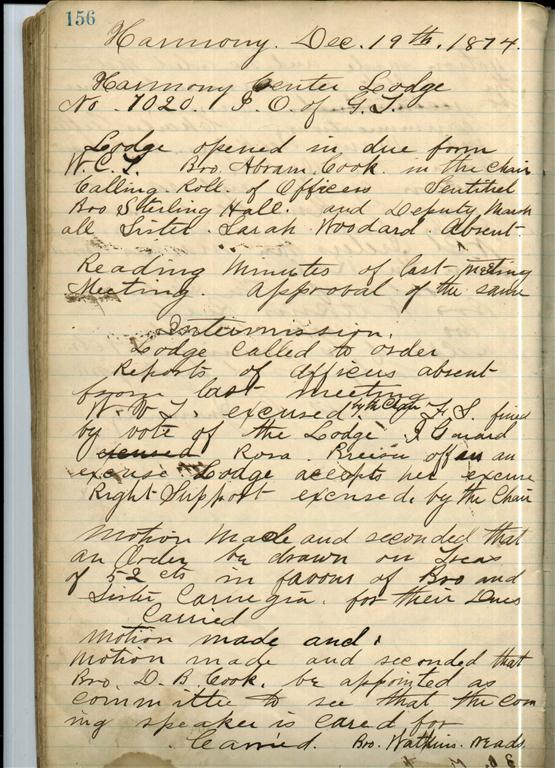 156
Harmony. Dec. 19th. 1874.
Harmony Center Lodge
No. 1020. I. O. of G. T.
Lodge opened in due form
W. C. T. Bro. Abram. Cook. in the chair
Calling. Roll. of Officers Sentinel
Bro Sterling Hall. and Deputy Marsh
all Sister. Sarah. Woodard. absent.
Reading Minutes of last meeting
Meeting. approval of the same
Intermission.
Lodge called to order
Reports of officers absent
from last meeting
W. V. T. excused by the Chair F. S. fined
by vote of the Lodge. I Guard
excused Rosa. offers an
excuse Lodge accepts her excuse
Right Support excused. by the Chair
Motion made and seconded that
an Order be drawn on Treas
of 52 cts in favour of Bro and
Sister Carnegia. for their Dues
Carried
Motion made and.
Motion made and seconded that
Bro. D. B. Cook. be appointed as
committee to see that the com
ing speaker is cared for
Carried. Bro. Watkins. reads.